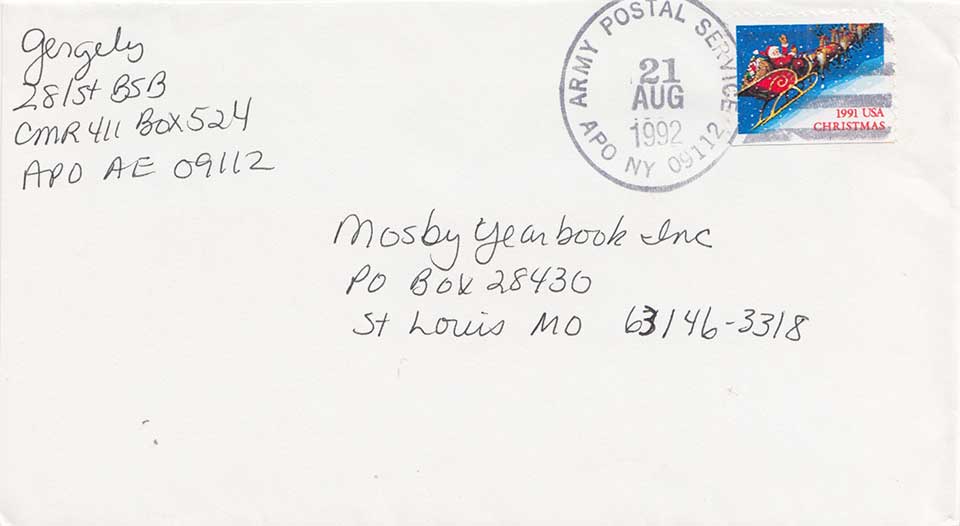 Gergely
281st BSB
CMR 411 Box 524
APO AE 09112
ARMY POSTAL SERVICE
21
AUG
1992
APO NY 09112
1991 USA
CHRISTMAS
Mosby Yearbook Inc
PO Box 28430
St Louis MO 63146-3318